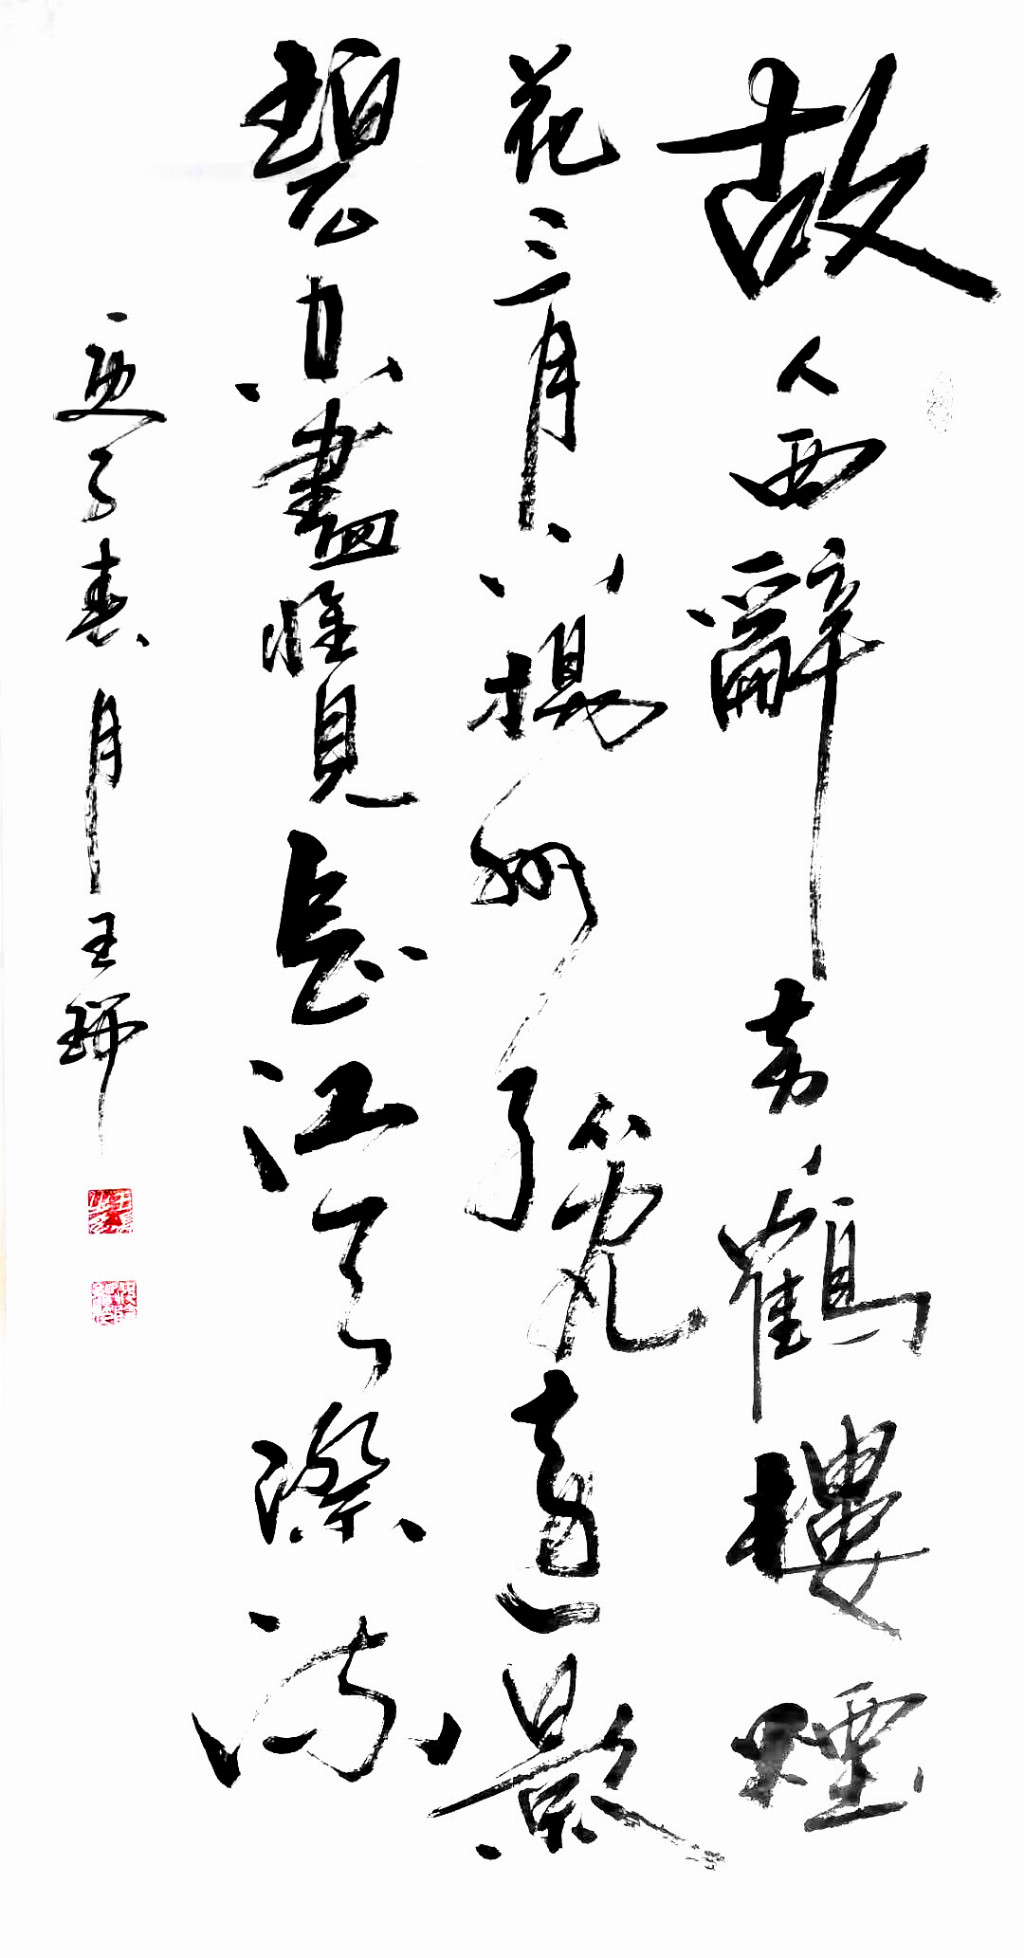 故人西辭黃鶴樓煙
花三月下揚州孤帆遠影
碧空盡惟見長江天際流
庚子春月王